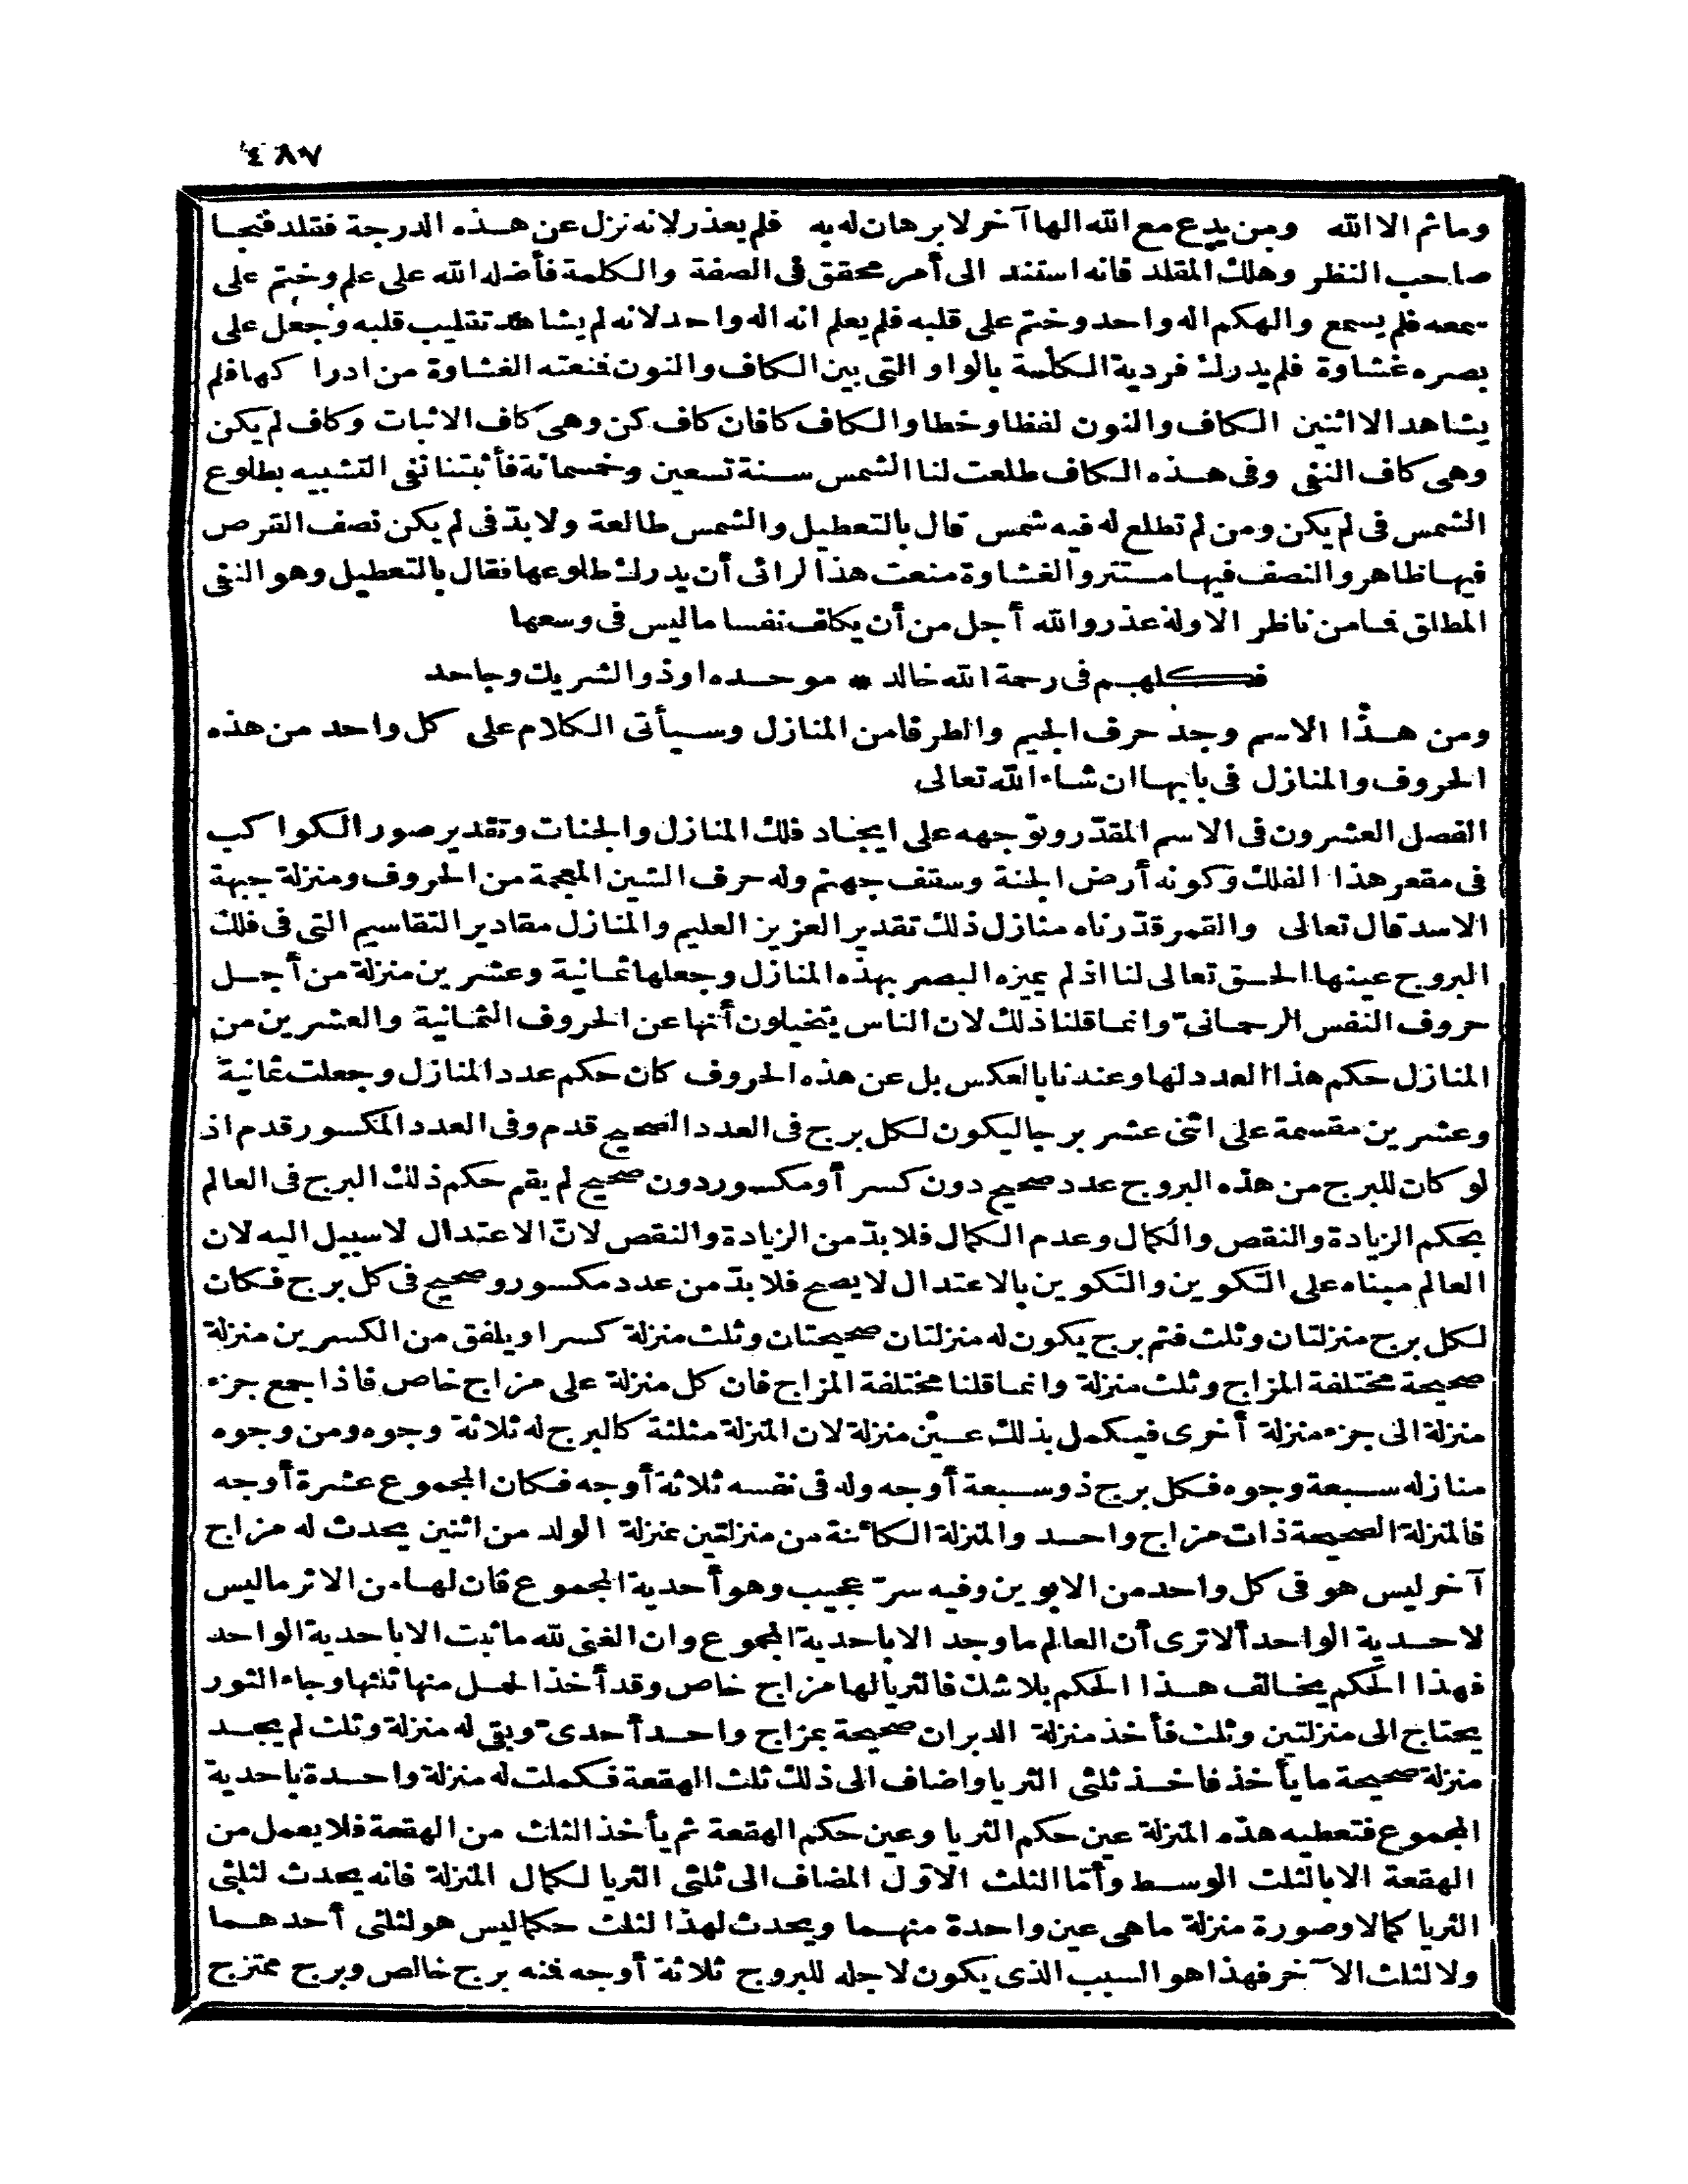 ٤٨٧
وماثم الا الله ومن يدع مع الله الها آخر لا برهان له به فلم يعذر لانه نزل عن هذه الدرجة فقلد فنجا
صاحب النظر وهلك المقلد فانه استند الى أمر محقق فى الصفة والكلمة فأضله الله على علم وختم على
سمعه فلم يسمع والهكم اله واحد وختم على قلبه فلم يعلم انه اله واحد لانه لم يشاهد تقليب قلبه وجعل على
بصره غشاوة فلم يدرك فردية الكلمة بالواو التى بين الكاف والنون فمنعته الغشاوة من ادراكها فلم
يشاهد الا اثنين الكاف والنون لفظا وخطا والكاف كافان كاف كن وهى كاف الاثبات وكاف لم يكن
وهى كاف النفى وفى هذه الكاف طلعت لنا الشمس سنة تسعين وخمسمائة فأثبتنا نفى التشبيه بطلوع
الشمس فى لم يكن ومن لم تطلع له فيه شمس قال بالتعطيل والشمس طالعة ولا بدّ فى لم يكن نصف القرص
فيها ظاهر والنصف فيها مستتر والغشاوة منعت هذا الرائى أن يدرك طلوعها فقال بالتعطيل وهو النفى
المطلق فما من ناظر الا وله عذر والله أجل من أن يكلف نفسا ما ليس فى وسعها
فكلهم فى رحمة الله خالد * موحده او ذو الشريك وجاحد
ومن هذا الاسم وجد حرف الجيم والطرفا من المنازل وسيأتى الكلام على كل واحد من هذه
الحروف والمنازل فى بابها ان شاء الله تعالى
الفصل العشرون فى الاسم المقدّر وتوجهه على ايجاد فلك المنازل والجنات وتقدير صور الكواكب
فى مقعر هذا الفلك وكونه أرض الجنة وسقف جهنم وله حرف الشين المعجمة من الحروف ومنزلة جبهة
الاسد قال تعالى والقمر قدّرناه منازل ذلك تقدير العزيز العليم والمنازل مقادير التقاسيم التى فى فلك
البروج عينها الحق تعالى لنا اذ لم يميزه البصر بهذه المنازل وجعلها ثمانية وعشرين منزلة من أجل
حروف النفس الرحمانىّ وانما قلنا ذلك لان الناس يتخيلون أنها عن الحروف الثمانية والعشرين من
المنازل حكم هذا العدد لها وعندنا بالعكس بل عن هذه الحروف كان حكم عدد المنازل وجعلت ثمانية
وعشرين مقسمة على اثنى عشر برجا ليكون لكل برج فى العدد الصحيح قدم وفى العدد المكسور قدم اذ
لو كان للبرج من هذه البروج عدد صحيح دون كسر أو مكسور دون صحيح لم يقم حكم ذلك البرج فى العالم
بحكم الزيادة والنقص والكمال وعدم الكمال فلا بدّ من الزيادة والنقص لانّ الاعتدال لا سبيل اليه لان
العالم مبناه على التكوين والتكوين بالاعتدال لا يصح فلا بدّ من عدد مكسور وصحيح فى كل برج فكان
لكل برج منزلتان وثلث فثم برج يكون له منزلتان صحيحتان وثلث منزلة كسرا ويلفق من الكسرين منزلة
صحيحة مختلفة المزاج وثلث منزلة وانما قلنا مختلفة المزاج فان كل منزلة على مزاج خاص فاذا جمع جزء
منزلة الى جزء منزلة أخرى فيكمل بذلك عين منزلة لان المنزلة مثلثة كالبرج له ثلاثة وجوه ومن وجوه
منازله سبعة وجوه فكل برج ذو سبعة أوجه وله فى نفسه ثلاثة أوجه فكان المجموع عشرة أوجه
فالمنزلة الصحيحة ذات مزاج واحد والمنزلة الكائنة من منزلتين بمنزلة الولد من اثنين يحدث له مزاج
آخر ليس هو فى كل واحد من الابوين وفيه سرّ عجيب وهو أحدية المجموع فان لها من الاثر ما ليس
لاحدية الواحد ألا ترى أن العالم ما وجد الا باحدية المجموع وان الغنى لله ما ثبت الا باحدية الواحد
فهذا الحكم يخالف هذا الحكم بلا شك فالثريا لها مزاج خاص وقد أخذ الحمل منها ثلثها وجاء الثور
يحتاج الى منزلتين وثلث فأخذ منزلة الدبران صحيحة بمزاج واحد أحدىّ وبقى له منزلة وثلث لم يجد
منزلة صحيحة ما يأخذ فاخذ ثلثى الثريا واضاف الى ذلك ثلث الهقعة فكملت له منزلة واحدة باحدية
المجموع فتعطيه هذه المنزلة عين حكم الثريا وعين حكم الهقعة ثم يأخذ الثلث من الهقعة فلا يعمل من
الهقعة الا بالثلث الوسط وأمّا الثلث الاوّل المضاف الى ثلثى الثريا لكمال المنزلة فانه يحدث لثلثى
الثريا كمالا وصورة منزلة ماهى عين واحدة منهما ويحدث لهذا لثلث حكما ليس هو لثلثى أحدهما
ولا لثلث الآخر فهذا هو السبب الذى يكون لاجله للبروج ثلاثة أوجه فمنه برج خالص وبرج ممتزج